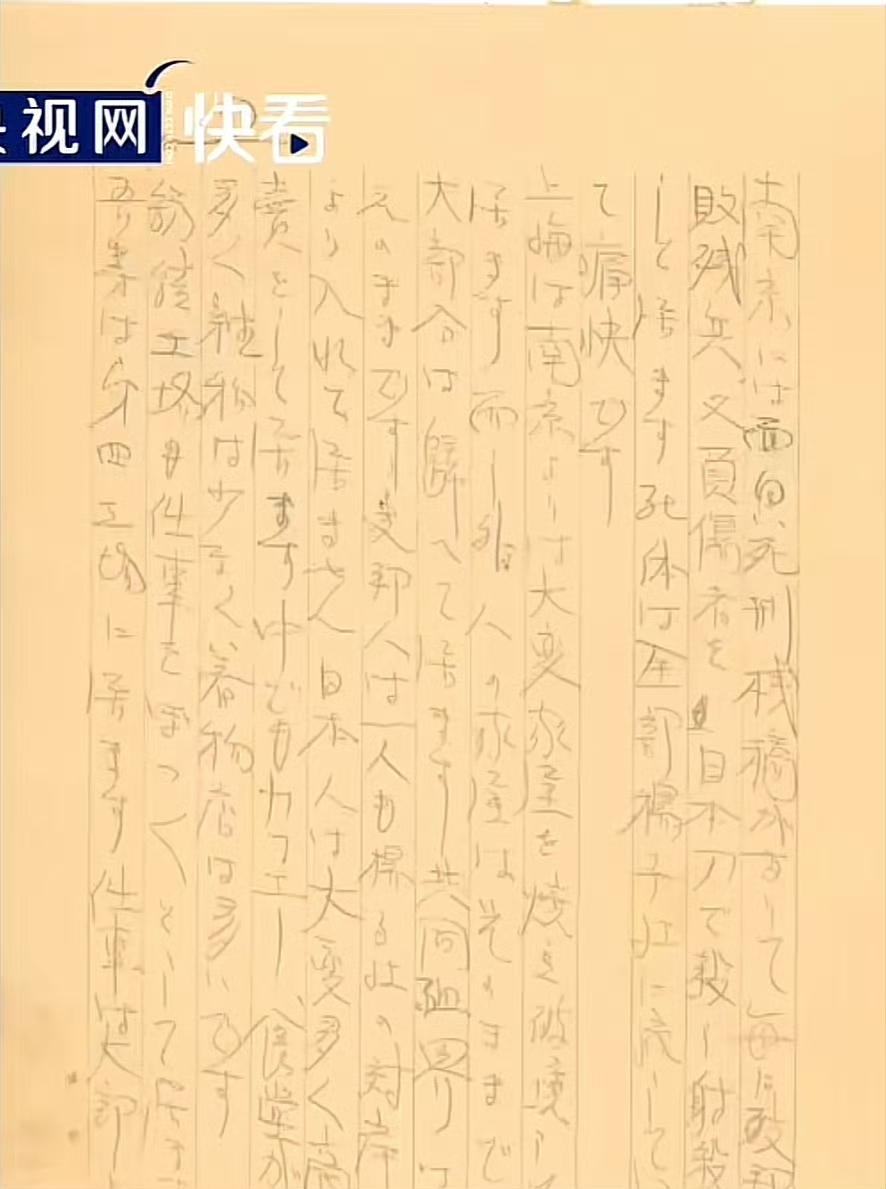 央视网 快看
南京には面白い死刑桟橋があして毎日
敗残兵又負傷者を日本刀で殺し射殺
して居ます死体は全部揚子江に流して
て痛快です
上海は南京よりは大変家屋を焼き破壊して
居ます而し外人の家屋はそのままで
大部分は歸へて居ます共同租界は
そのままです支那人は一人も揚子江の対岸
より入れて居ません日本人は大変多く商
売をして居ます中でもカフエー、食堂が
多く雑物は少なく着物店は多いです
紡績工場も仕事をぼつくとして居ま
吾々は第四工場に居ます仕事は大部